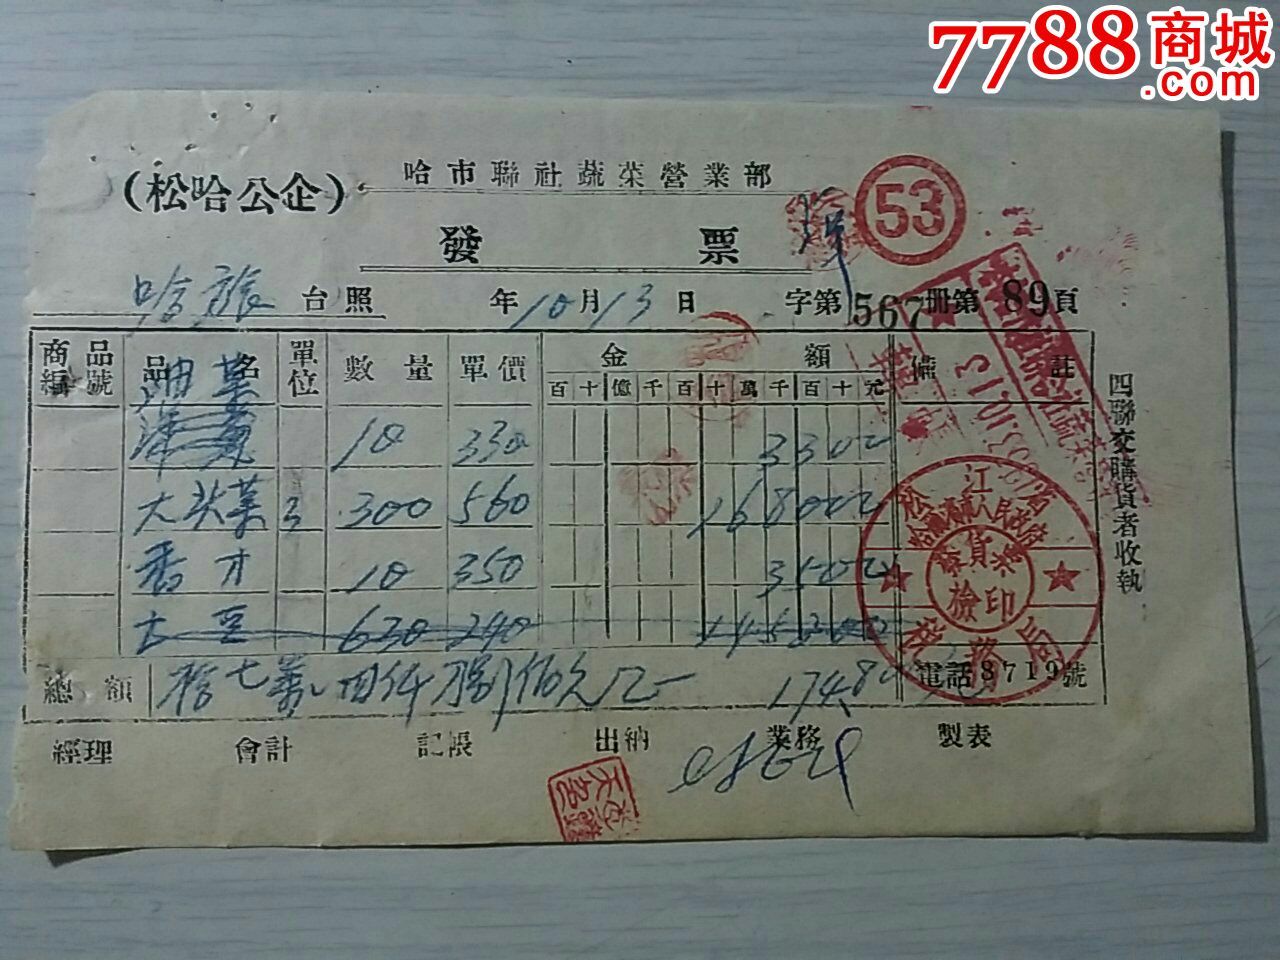 7788商城
.com
(松哈公企)
哈市聯社蔬菜營業部
53
發票
哈旅 台照
年10月13日
字第567冊第89頁
商品編號 品名 單位 數量 單價 金額 備註
百十億千百十萬千百十元
油菜 10 330 3300
大头菜 300 560 168000
香才 10 350 3500
大豆 630 240
總額 拾七萬四仟捌佰元 174.8
電話8719號
經理 會計 記帳 出納 業務 製表
四聯交購貨者收執
53.10.13
松江省
人民政府
稅務局
貨
檢印